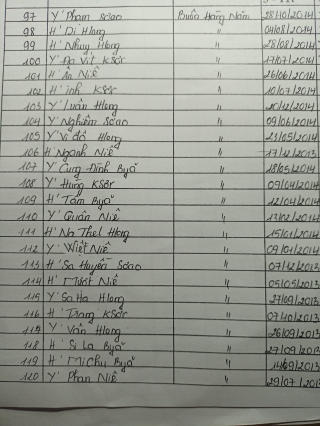 97 Y' Phạm Sơao Buôn Hằng Năm 28/10/2014
98 H' Di Hlong " 04/08/2014
99 H' Nhuy Hlong " 28/08/2014
100 Y' Đa Vít KSơr " 17/07/2014
101 H' Ân Niê " 26/06/2014
102 H' inh KSơr " 10/07/2014
103 Y' Luân Hlong " 20/12/2014
104 Y' Nghiêm Sơao " 09/06/2014
105 Y' Vi đô Hlong " 21/05/2014
106 H' Nganh Niê " 17/12/2013
107 Y' Cung Đinh Byă " 18/05/2014
108 Y' Hưng KSơr " 09/04/2014
109 H' Tâm Byă " 12/04/2014
110 Y' Quân Niê " 13/02/2014
111 H' Na Thel Hlong " 15/01/2014
112 Y' Wiệt Niê " 09/01/2014
113 H' Sa Huyền Sơao " 07/12/2013
114 H' Mướt Niê " 05/05/2013
115 Y' Sa Ha Hlong " 27/09/2013
116 H' Trang KSơr " 07/10/2013
117 Y' Vân Hlong " 26/09/2013
118 H' Si La Byă " 27/09/2013
119 H' Mi Chu Byă " 14/09/2013
120 Y' Phan Niê " 29/07/2013